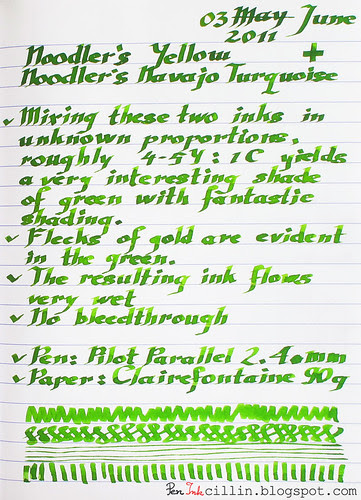 03 May June
2011
Noodler's Yellow +
Noodler's Navajo Turquoise
✓ Mixing these two inks in
unknown proportions,
roughly 4-5Y : 1C yields
a very interesting shade
of green with fantastic
shading.
✓ Flecks of gold are evident
in the green.
✓ The resulting ink flows
very wet
✓ No bleedthrough
✓ Pen: Pilot Parallel 2.4mm
✓ Paper: Clairefontaine 90g
Pen Inkcillin.blogspot.com